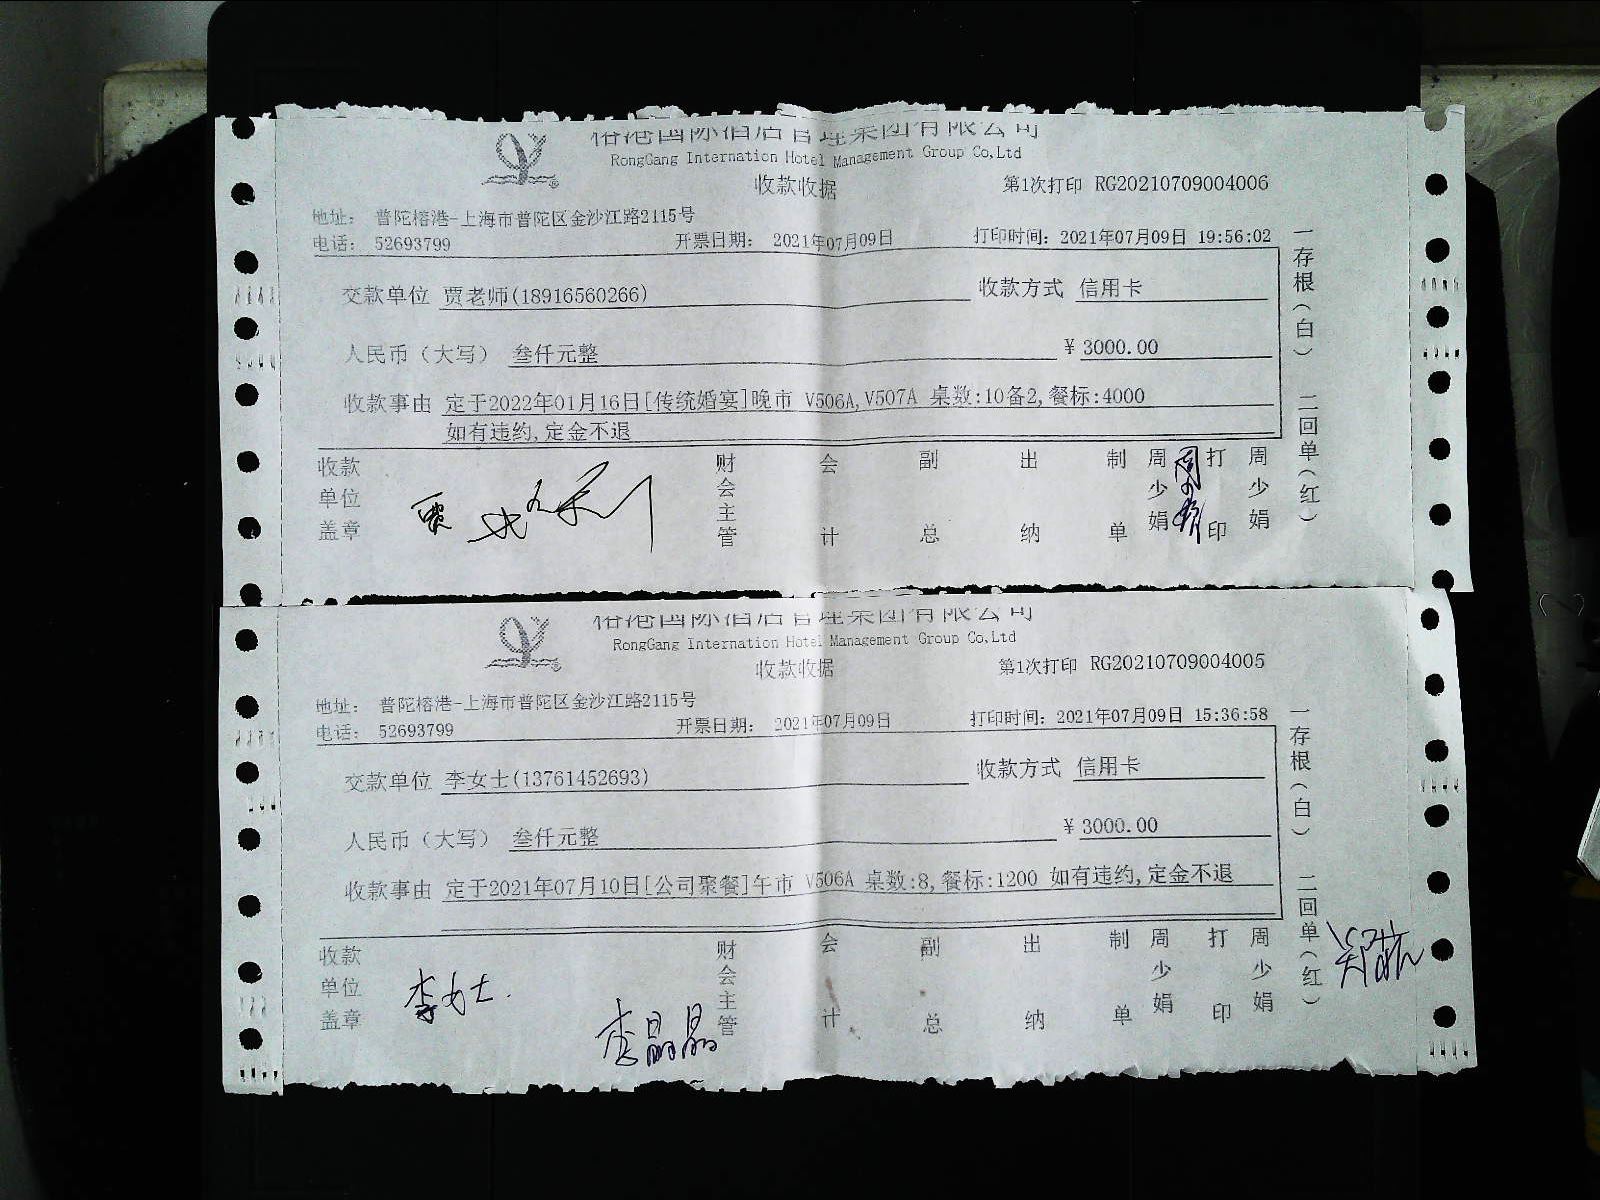 榕港国际酒店管理集团有限公司
RongGang Internation Hotel Management Group Co,Ltd
收款收据 第1次打印 RG20210709004006
地址: 普陀榕港-上海市普陀区金沙江路2115号
电话: 52693799 开票日期: 2021年07月09日 打印时间: 2021年07月09日 19:56:02
交款单位 贾老师(18916560266) 收款方式 信用卡
人民币(大写) 叁仟元整 ¥ 3000.00
收款事由 定于2022年01月16日[传统婚宴]晚市 V506A,V507A 桌数:10备2,餐标:4000
如有违约,定金不退
收款单位盖章 财会主管 会计 副总 出纳 制单 周少娟 周少娟 打印 周少娟
一存根(白) 二回单(红)
榕港国际酒店管理集团有限公司
RongGang Internation Hotel Management Group Co,Ltd
收款收据 第1次打印 RG20210709004005
地址: 普陀榕港-上海市普陀区金沙江路2115号
电话: 52693799 开票日期: 2021年07月09日 打印时间: 2021年07月09日 15:36:58
交款单位 李女士(13761452693) 收款方式 信用卡
人民币(大写) 叁仟元整 ¥ 3000.00
收款事由 定于2021年07月10日[公司聚餐]午市 V506A 桌数:8,餐标:1200 如有违约,定金不退
收款单位盖章 李女士. 李晶晶 财会主管 会计 副总 出纳 制单 周少娟 打印 周少娟
一存根(白) 二回单(红)